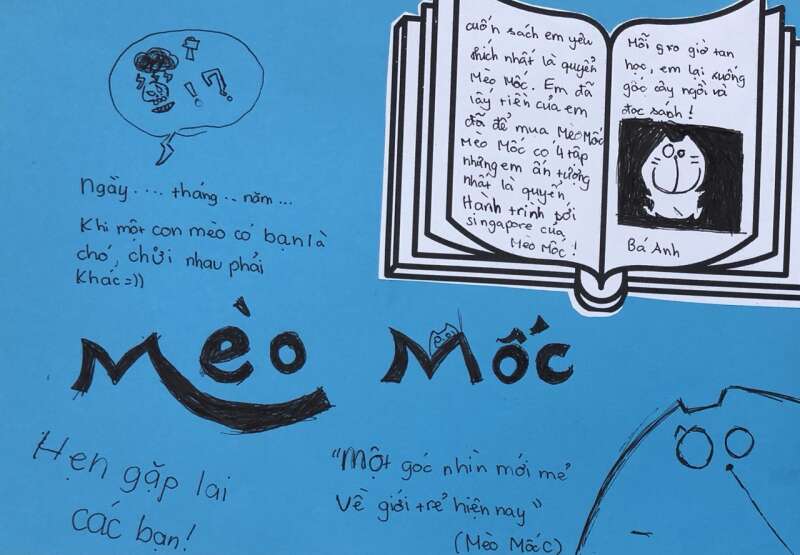 cuốn sách em yêu
thích nhất là quyển
Mèo Mốc. Em đã
lấy tiền của em
đã để mua Mèo Mốc
Mèo Mốc có 4 tập
nhưng em ấn tượng
nhất là quyển
Hành trình tới
singapore của
Mèo Mốc!
Mỗi giờ tan
học, em lại xuống
gốc cây ngồi và
đọc sách!
Bá Anh
!?
Ngầy .... tháng .. năm ...
Khi một con mèo có bạn là
chó, chửi nhau phải
Khác =))
Mèo Mốc
Hẹn gặp lại
các bạn!
"Một góc nhìn mới mẻ
Về giới trẻ hiện nay"
(Mèo Mốc)